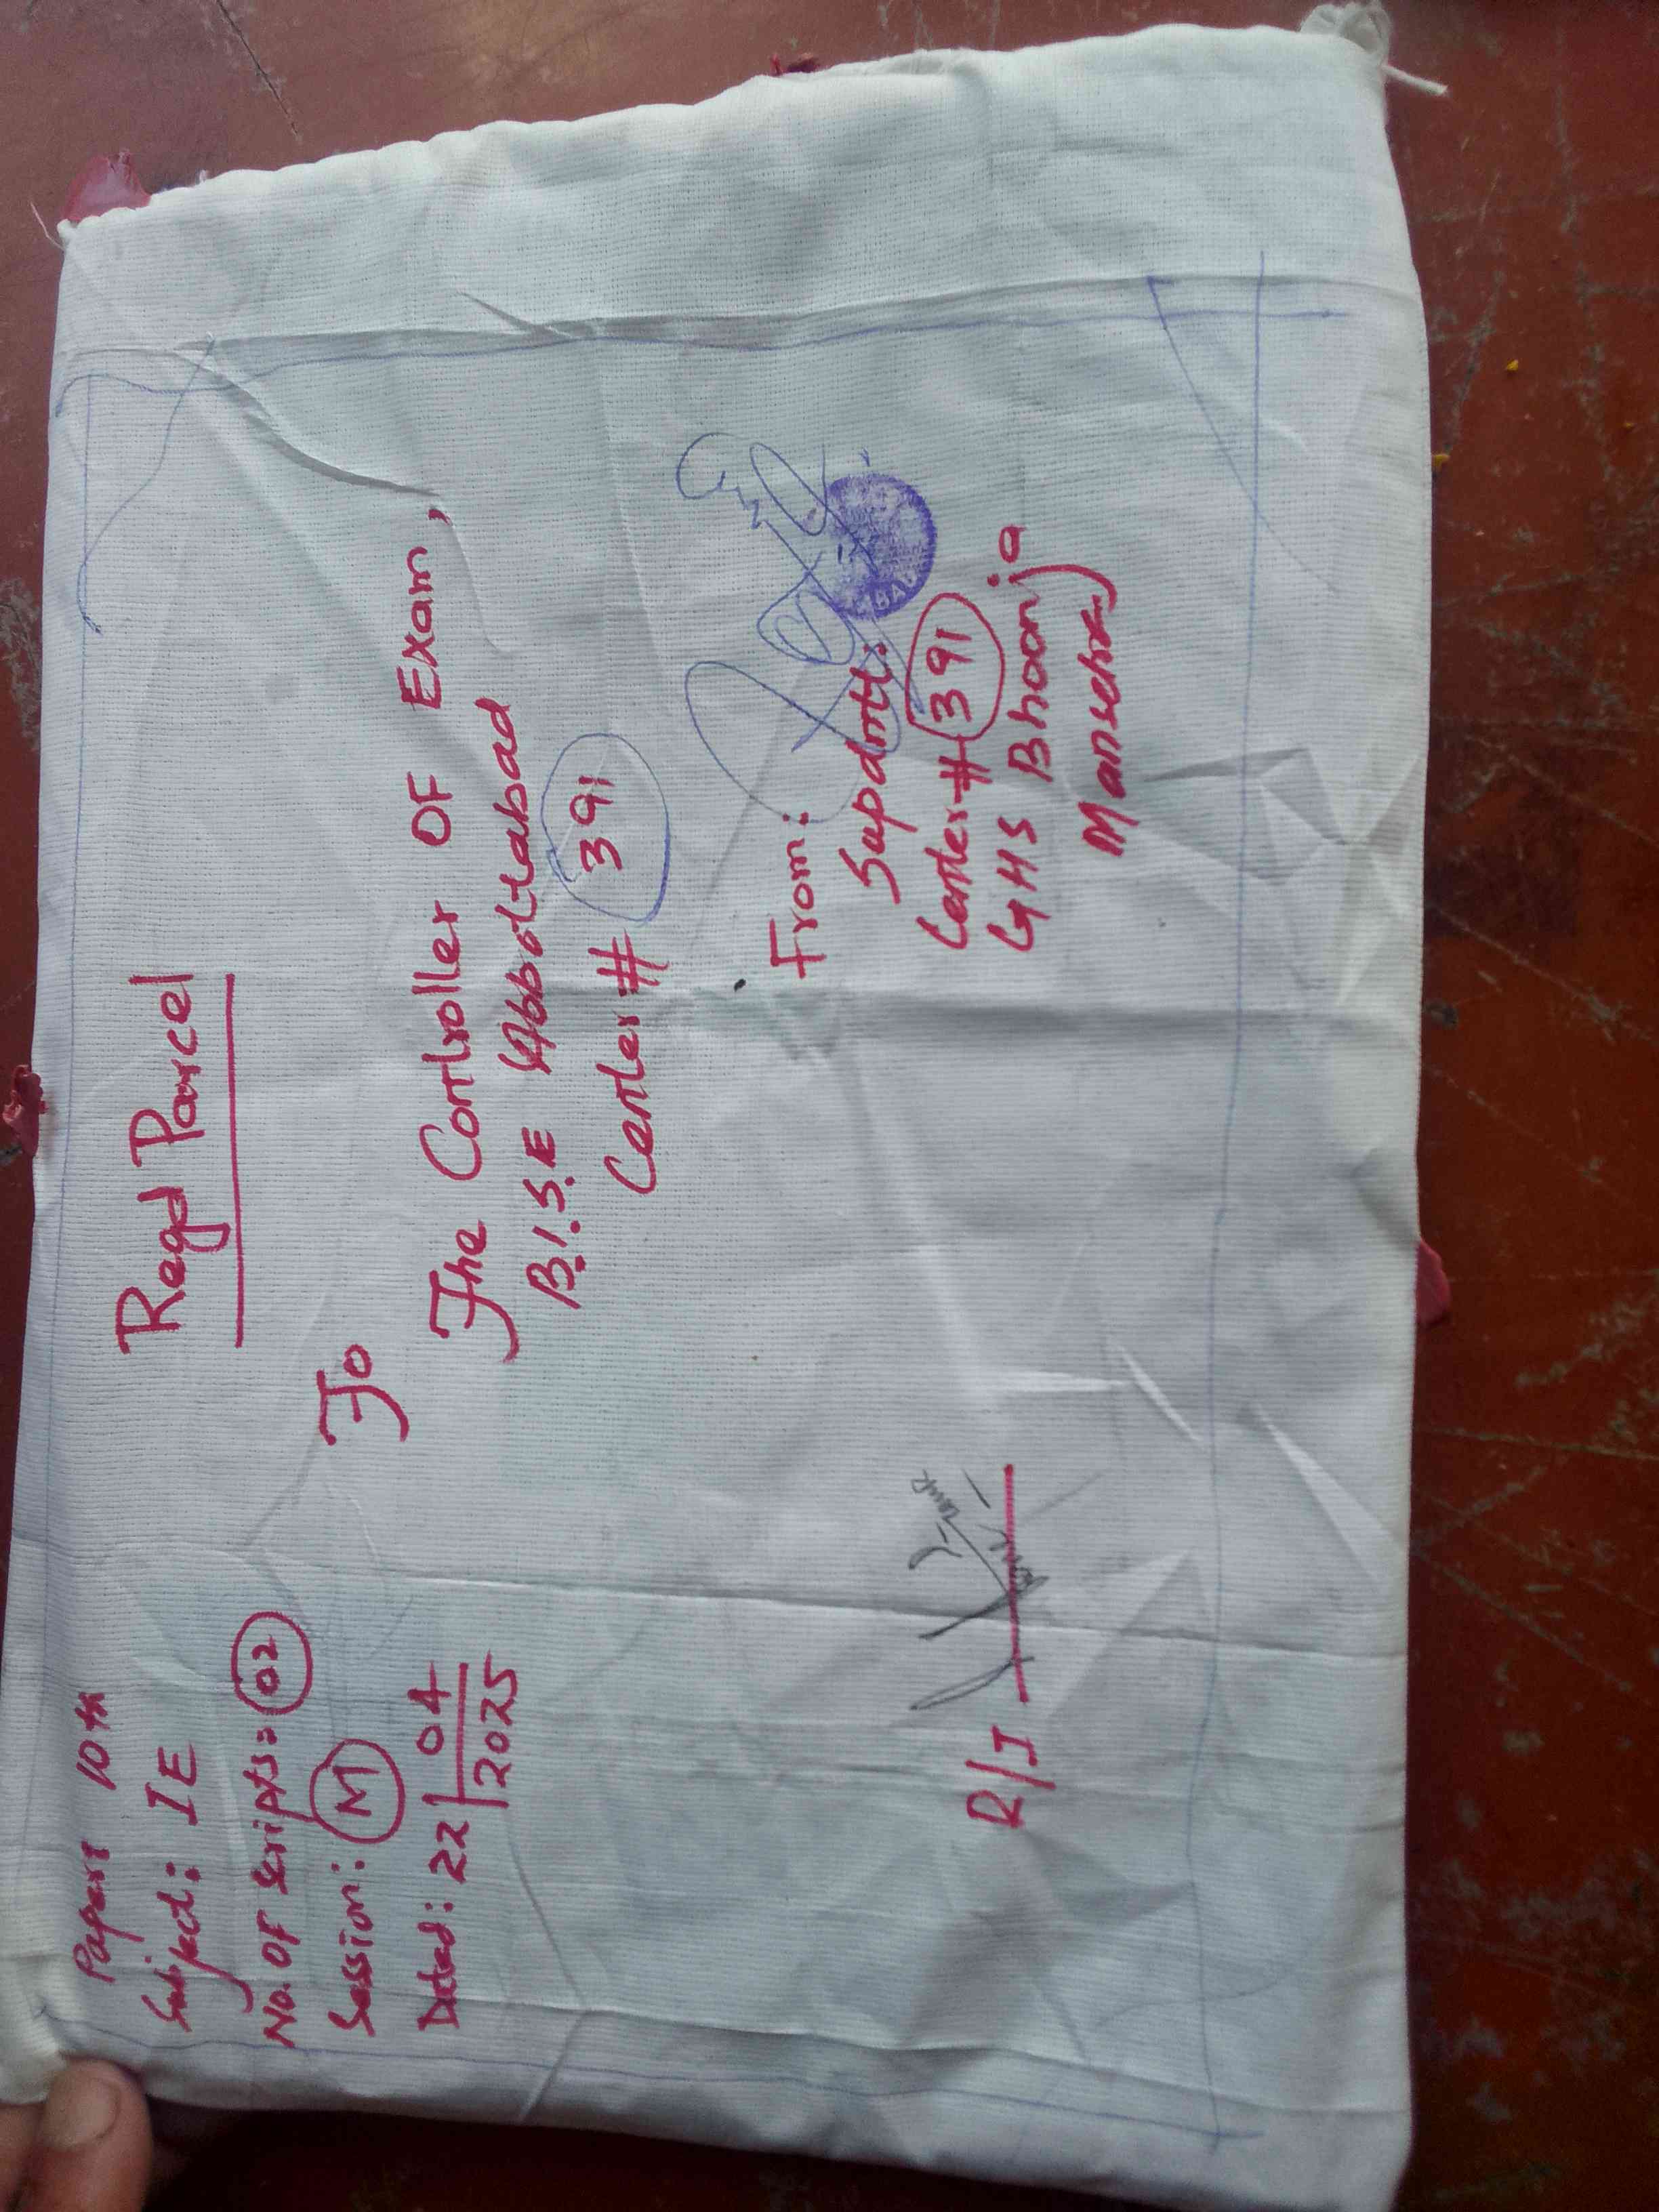 Regd Parcel
Paper 10th
Subject: IE
No. of Scripts: 02
Session: M
Dated: 22/04/2025
To
The Controller OF Exam,
B.I.S.E Abbottabad
Center # 391
From:
Supdntt:
Center # 391
GHS Bhoonja
Mansehra
R/I